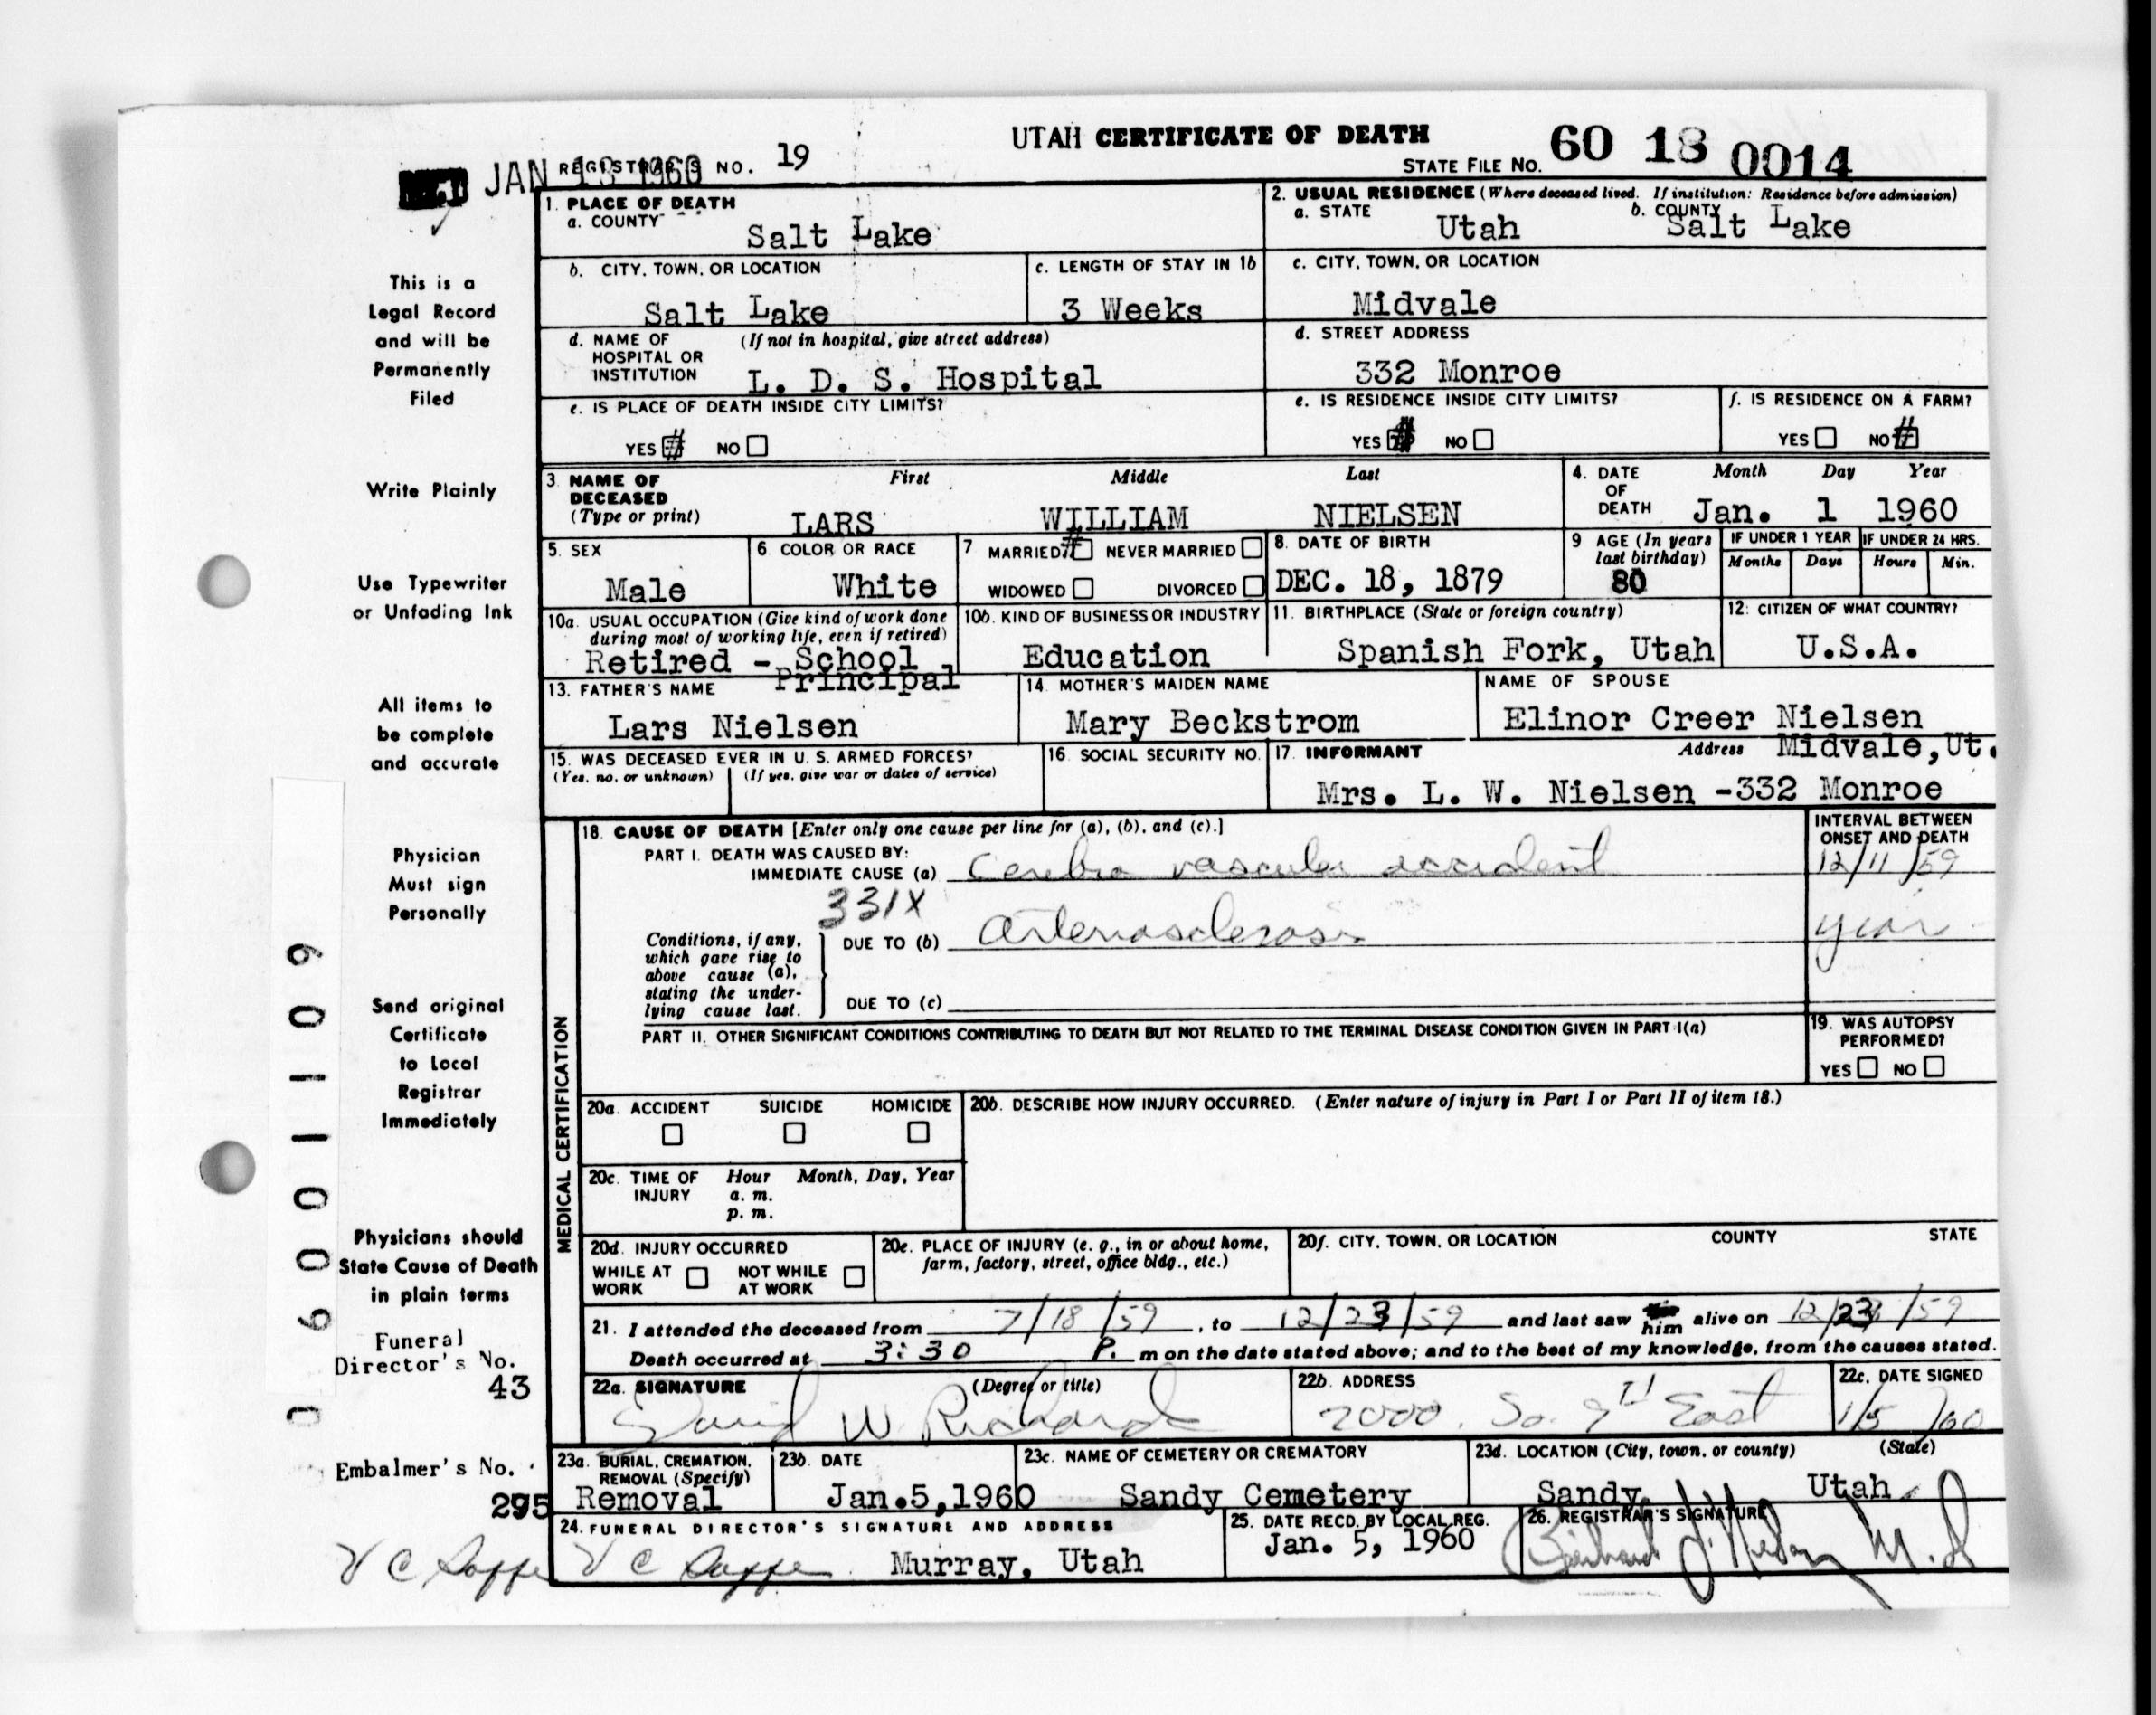 UTAH CERTIFICATE OF DEATH
JAN 18 1960 REGISTRAR'S NO. 19
STATE FILE NO. 60 18 0014
This is a
Legal Record
and will be
Permanently
Filed
Write Plainly
Use Typewriter
or Unfading Ink
All items to
be complete
and accurate
Physician
Must sign
Personally
Send original
Certificate
to Local
Registrar
Immediately
Physicians should
State Cause of Death
in plain terms
Funeral
Director's No.
43
Embalmer's No.
295
0 6 0 0 1 1 1 0 9
1. PLACE OF DEATH
a. COUNTY
Salt Lake
b. CITY, TOWN, OR LOCATION
Salt Lake
c. LENGTH OF STAY IN 1b
3 Weeks
d. NAME OF HOSPITAL OR INSTITUTION (If not in hospital, give street address)
L. D. S. Hospital
e. IS PLACE OF DEATH INSIDE CITY LIMITS?
YES # NO
2. USUAL RESIDENCE (Where deceased lived. If institution: Residence before admission)
a. STATE Utah b. COUNTY Salt Lake
c. CITY, TOWN, OR LOCATION
Midvale
d. STREET ADDRESS
332 Monroe
e. IS RESIDENCE INSIDE CITY LIMITS?
YES # NO
f. IS RESIDENCE ON A FARM?
YES NO #
3. NAME OF DECEASED (Type or print)
First Middle Last
LARS WILLIAM NIELSEN
4. DATE OF DEATH Month Day Year
Jan. 1 1960
5. SEX
Male
6. COLOR OR RACE
White
7. MARRIED # NEVER MARRIED
WIDOWED DIVORCED
8. DATE OF BIRTH
DEC. 18, 1879
9. AGE (In years last birthday)
80
IF UNDER 1 YEAR
Months Days
IF UNDER 24 HRS.
Hours Min.
10a. USUAL OCCUPATION (Give kind of work done
during most of working life, even if retired)
Retired - School
Principal
10b. KIND OF BUSINESS OR INDUSTRY
Education
11. BIRTHPLACE (State or foreign country)
Spanish Fork, Utah
12. CITIZEN OF WHAT COUNTRY?
U.S.A.
13. FATHER'S NAME
Lars Nielsen
14. MOTHER'S MAIDEN NAME
Mary Beckstrom
NAME OF SPOUSE
Elinor Creer Nielsen
15. WAS DECEASED EVER IN U. S. ARMED FORCES?
(Yes, no, or unknown) (If yes, give war or dates of service)
16. SOCIAL SECURITY NO.
17. INFORMANT Address Midvale,Ut.
Mrs. L. W. Nielsen -332 Monroe
MEDICAL CERTIFICATION
18. CAUSE OF DEATH [Enter only one cause per line for (a), (b), and (c).]
PART I. DEATH WAS CAUSED BY:
IMMEDIATE CAUSE (a) Cerebro vascular accident
331X
Conditions, if any,
which gave rise to
above cause (a),
stating the under-
lying cause last.
DUE TO (b) Arteriosclerosis
DUE TO (c)
INTERVAL BETWEEN
ONSET AND DEATH
12/11/59
PART II. OTHER SIGNIFICANT CONDITIONS CONTRIBUTING TO DEATH BUT NOT RELATED TO THE TERMINAL DISEASE CONDITION GIVEN IN PART I(a)
19. WAS AUTOPSY
PERFORMED?
YES NO
20a. ACCIDENT SUICIDE HOMICIDE
20b. DESCRIBE HOW INJURY OCCURRED. (Enter nature of injury in Part I or Part II of item 18.)
20c. TIME OF INJURY Hour Month, Day, Year
a. m.
p. m.
20d. INJURY OCCURRED
WHILE AT WORK NOT WHILE AT WORK
20e. PLACE OF INJURY (e. g., in or about home,
farm, factory, street, office bldg., etc.)
20f. CITY, TOWN, OR LOCATION COUNTY STATE
21. I attended the deceased from 7/18/59, to 12/23/59 and last saw him alive on 12/23/59
Death occurred at 3:30 P. m on the date stated above; and to the best of my knowledge, from the causes stated.
22a. SIGNATURE (Degree or title)
David W. Richards
22b. ADDRESS
7000 So. 9th East
22c. DATE SIGNED
1/5/60
23a. BURIAL, CREMATION,
REMOVAL (Specify)
Removal
23b. DATE
Jan.5,1960
23c. NAME OF CEMETERY OR CREMATORY
Sandy Cemetery
23d. LOCATION (City, town, or county) (State)
Sandy, Utah
24. FUNERAL DIRECTOR'S SIGNATURE AND ADDRESS
Murray, Utah
25. DATE RECD. BY LOCAL REG.
Jan. 5, 1960
26. REGISTRAR'S SIGNATURE